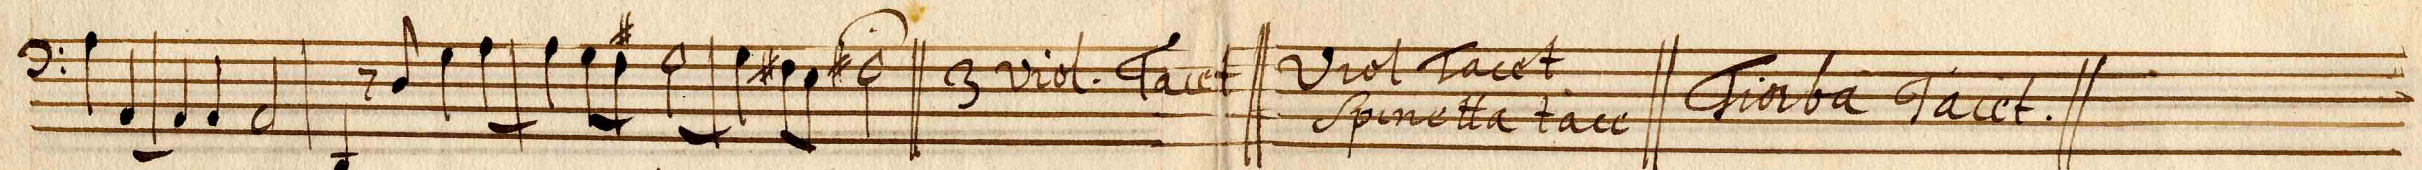 3 Viol. Tacet
Viol Tacet
Spinetta tace
Tiorba Tacet.